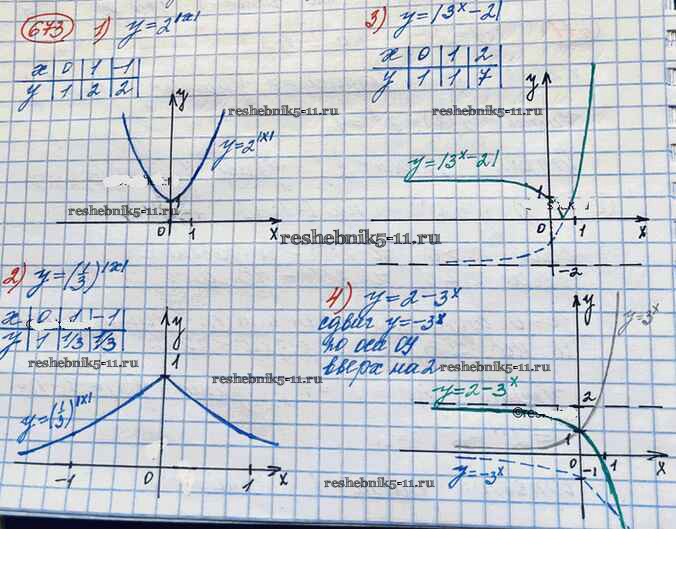 673 1) y=2^|x|
x | 0 | 1 | -1 |
y | 1 | 2 | 2 |
y
reshebnik5-11.ru
y=2^|x|
reshebnik5-11.ru
0 1 x
3) y=|3^x-2|
x | 0 | 1 | 2
y | 1 | 1 | 7
y
reshebnik5-11.ru
y=|3^x-2|
0 1 x
reshebnik5-11.ru
-2
2) y=(1/3)^|x|
x 0 1 -1
y | 1 | 1/3 | 1/3 |
reshebnik5-11.ru
y
1
reshebnik5-11.ru
y=(1/3)^|x|
-1 0 1 x
4) y=2-3^x
сдвиг y=-3^x
по оси Oy
вверх на 2
reshebnik5-11.ru
y
y=3^x
y=2-3^x
2
1
0 -1 1 x
y=-3^x
reshebnik5-11.ru